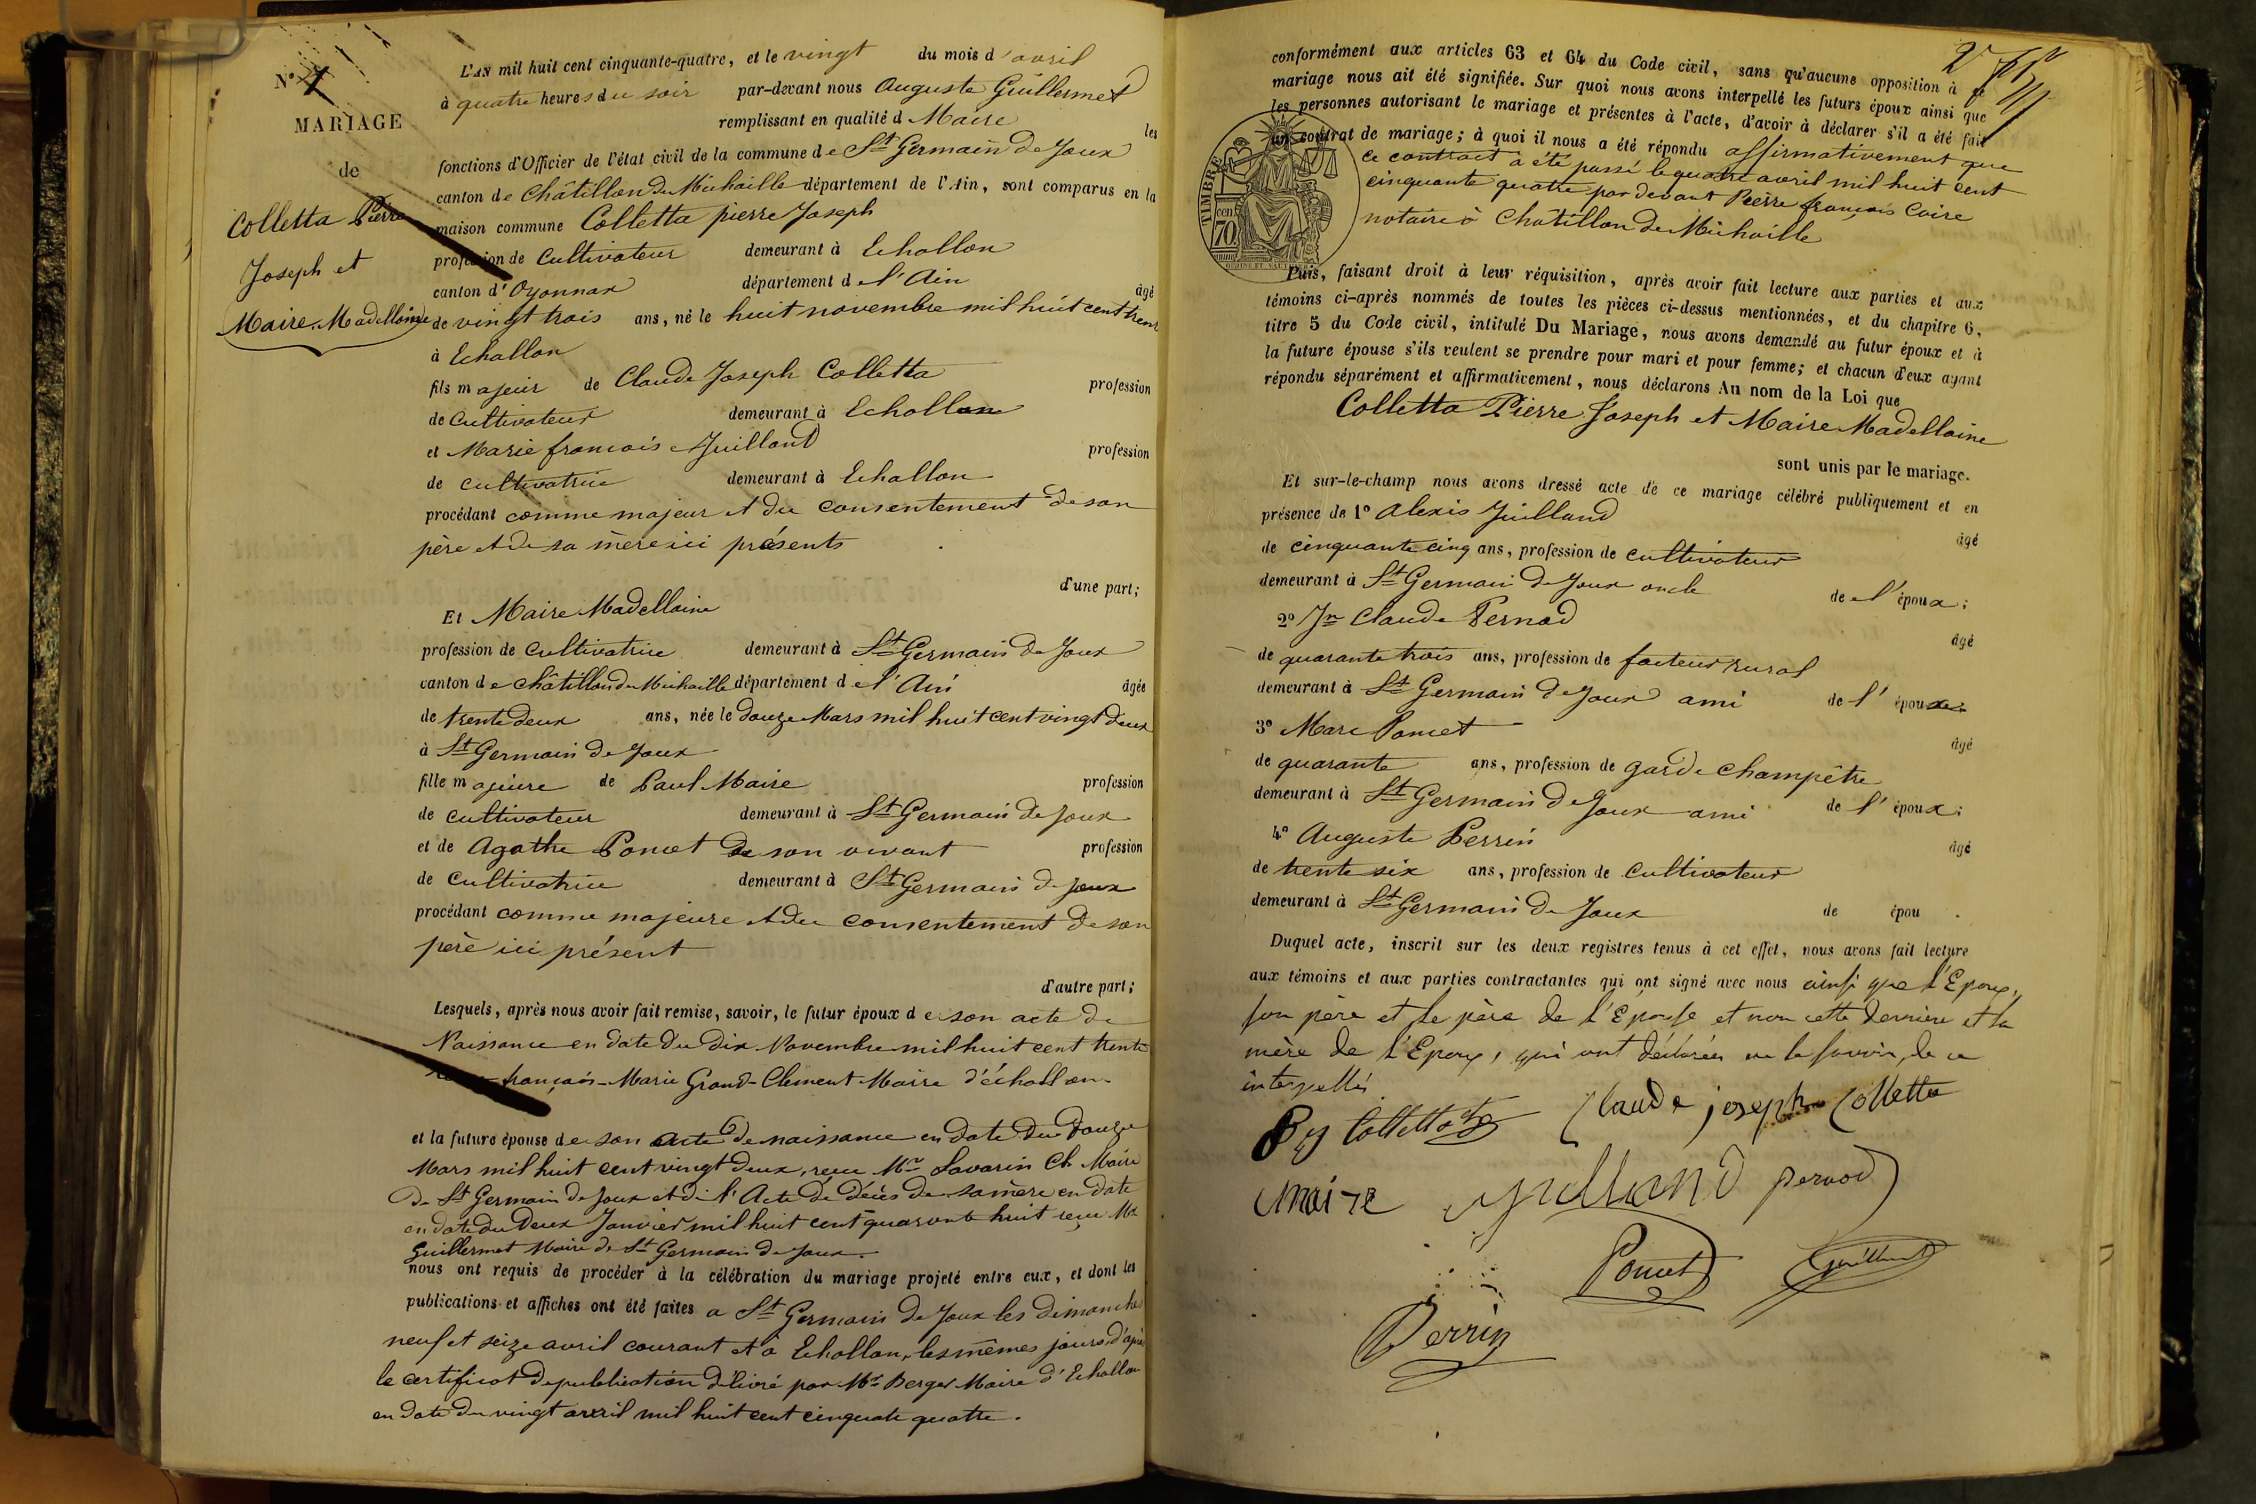 N° 1
MARIAGE
de
Colletta Pierre
Joseph et
Maire Madellaine
L'AN mil huit cent cinquante-quatre, et le vingt du mois d'avril
à quatre heures du soir par-devant nous Auguste Guillermet
remplissant en qualité d Maire les
fonctions d'Officier de l'état civil de la commune de St Germain de Joux
canton de Châtillon de Michaille département de l'Ain, sont comparus en la
maison commune Colletta pierre Joseph
profession de Cultivateur demeurant à Echallon
canton d'Oyonnax département de l'Ain âgé
de vingt trois ans, né le huit novembre mil huit cent trente
à Echallon
fils majeur de Claude Joseph Colletta profession
de Cultivateur demeurant à Echallon
et Marie francois Juilland profession
de cultivatrice demeurant à Echallon
procédant comme majeur et du consentement de son
père et de sa mère ici présents
d'une part;
Et Maire Madellaine
profession de Cultivatrice demeurant à St Germain de Joux
canton de Châtillon de Michaille département de l'Ain âgée
de trente deux ans, née le douze Mars mil huit cent vingt deux
à St Germain de Joux
fille majeure de Paul Maire profession
de cultivateur demeurant à St Germain de Joux
et de Agathe Poncet de son vivant profession
de Cultivatrice demeurant à St Germain de Joux
procédant comme majeure et du consentement de son
père ici présent
d'autre part;
Lesquels, après nous avoir fait remise, savoir, le futur époux de son acte de
Naissance en date du dix Novembre mil huit cent trente
françois-Marie Grand-Clement Maire d'échallon.
et la future épouse de son acte de naissance en date du douze
Mars mil huit cent vingt deux, reçu Mr Savarin Ch. Maire
de St Germain de Joux et de l'Acte de décès de sa mère en date
en date du deux Janvier mil huit cent quarante huit reçu Mr
Guillermet Maire de St Germain de Joux.
nous ont requis de procéder à la célébration du mariage projeté entre eux, et dont les
publications et affiches ont été faites a St Germain de Joux les dimanche
neuf et seize avril courant et à Echallon, les mêmes jours, d'après
le certificat de publication délivré par Mr Berger Maire d'Echallon
en date du vingt avril mil huit cent cinquate quatre.
conformément aux articles 63 et 64 du Code civil, sans qu'aucune opposition à ce
mariage nous ait été signifiée. Sur quoi nous avons interpellé les futurs époux ainsi que
les personnes autorisant le mariage et présentes à l'acte, d'avoir à déclarer s'il a été fait
un contrat de mariage; à quoi il nous a été répondu affirmativement que
ce contract a été passé le quatre avril mil huit cent
cinquante quatre par devant Pierre françois Caire
notaire à Châtillon de Michaille
TIMBRE
cen
70
Puis, faisant droit à leur réquisition, après avoir fait lecture aux parties et aux
témoins ci-après nommés de toutes les pièces ci-dessus mentionnées, et du chapitre 6,
titre 5 du Code civil, intitulé Du Mariage, nous avons demandé au futur époux et à
la future épouse s'ils veulent se prendre pour mari et pour femme; et chacun d'eux ayant
répondu séparément et affirmativement, nous déclarons Au nom de la Loi que
Colletta Pierre Joseph et Maire Madellaine
sont unis par le mariage.
Et sur-le-champ nous avons dressé acte de ce mariage célébré publiquement et en
présence de 1° Alexis Juilland
âgé
de cinquante cinq ans, profession de cultivateur
demeurant à St Germain de Joux oncle de l'époux;
2° Jn Claude Pernod
âgé
de quarante trois ans, profession de facteur rural
demeurant à St Germain de Joux ami de l'époux
3° Marc Poncet
âgé
de quarante ans, profession de garde champêtre
demeurant à St Germain de Joux ami de l'époux;
4° Auguste Perrin
âgé
de trente six ans, profession de Cultivateur
demeurant à St Germain de Joux de épou .
Duquel acte, inscrit sur les deux registres tenus à cet effet, nous avons fait lecture
aux témoins et aux parties contractantes qui ont signé avec nous ainsi que l'Epoux,
son père et le père de l'Epouse et non cette dernière et la
mère de l'Epoux, qui ont déclarées ne le savoir, de ce
interpellés
Colletta Claude joseph Colletta
maire Juilland pernod
Poncet Guillermet
Perrin